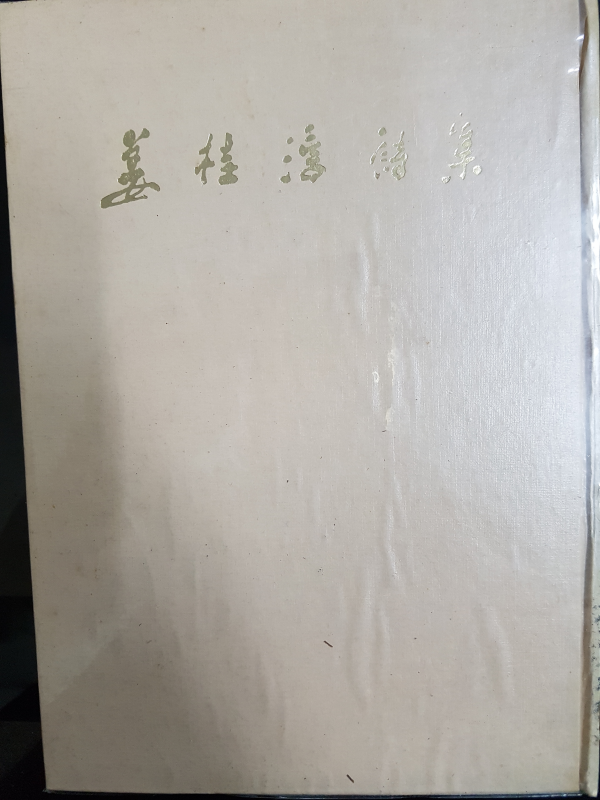 姜桂淳詩集